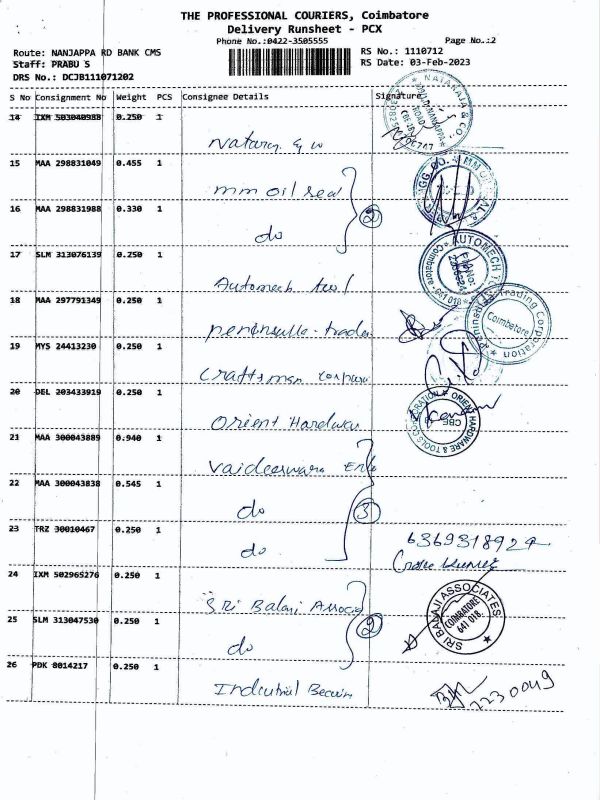 THE PROFESSIONAL COURIERS, Coimbatore
Delivery Runsheet - PCX
Phone No.:0422-3505555 Page No.:2
Route: NANJAPPA RD BANK CMS RS No.: 1110712
Staff: PRABU S RS Date: 03-Feb-2023
DRS No.: DCJB111071202
S No Consignment No Weight PCS Consignee Details Signature
14 IXM 503040988 0.250 1
NATARAJA & CO.
15 MAA 298831049 0.455 1
mm oil seal
16 MAA 298831988 0.330 1
do 2
17 SLM 313076139 0.250 1
Automech
AUTOMECH
Coimbatore - 641 018
18 MAA 297791349 0.250 1
Peninsular Trading Corporation
Coimbatore
19 MYS 24413230 0.250 1
Craftsman
20 DEL 203433919 0.250 1
Orient Hardwar
ORIENT HARDWARE & TOOLS CORPORATION
CBE
21 MAA 300043889 0.940 1
Vaideeswara
22 MAA 300043838 0.545 1
do 3
23 TRZ 30010467 0.250 1
do
6369318924
24 IXM 502965276 0.250 1
Sri Balaji Associa
SRI BALAJI ASSOCIATES
COIMBATORE
641 018.
25 SLM 313047530 0.250 1
do 2
26 PDK 8014217 0.250 1
2230049